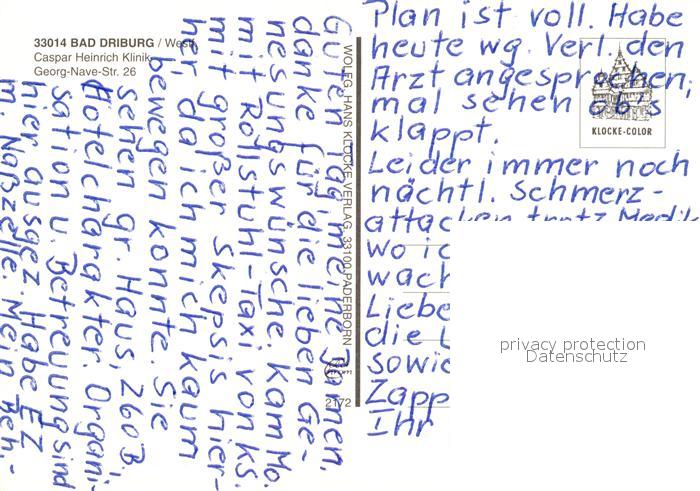 33014 BAD DRIBURG / West
Caspar Heinrich Klinik
Georg-Nave-Str. 26
WOLFG. HANS KLOCKE VERLAG, 33100 PADERBORN
2172
KLOCKE-COLOR
Guten Tag meine Damen,
danke für die lieben Ge-
nesungswünsche. Kam Mo.
mit Rollstuhl-Taxi von KS.
mit großer Skepsis hier-
her, da ich mich kaum
bewegen konnte. Sie
sehen gr. Haus, 260 B,
Hotelcharakter. Organi-
sation u. Betreuung sind
hier ausgez. Habe EZ
m. Naßzelle. Mein Beh.-
Plan ist voll. Habe
heute wg. Verl. den
Arzt angesprochen;
mal sehen ob's
klappt.
Leider immer noch
nächtl. Schmerz-
attacken trotz Medik
wo ic
wach
Liebe
die L
sowie
Zapp
Ihr
privacy protection
Datenschutz